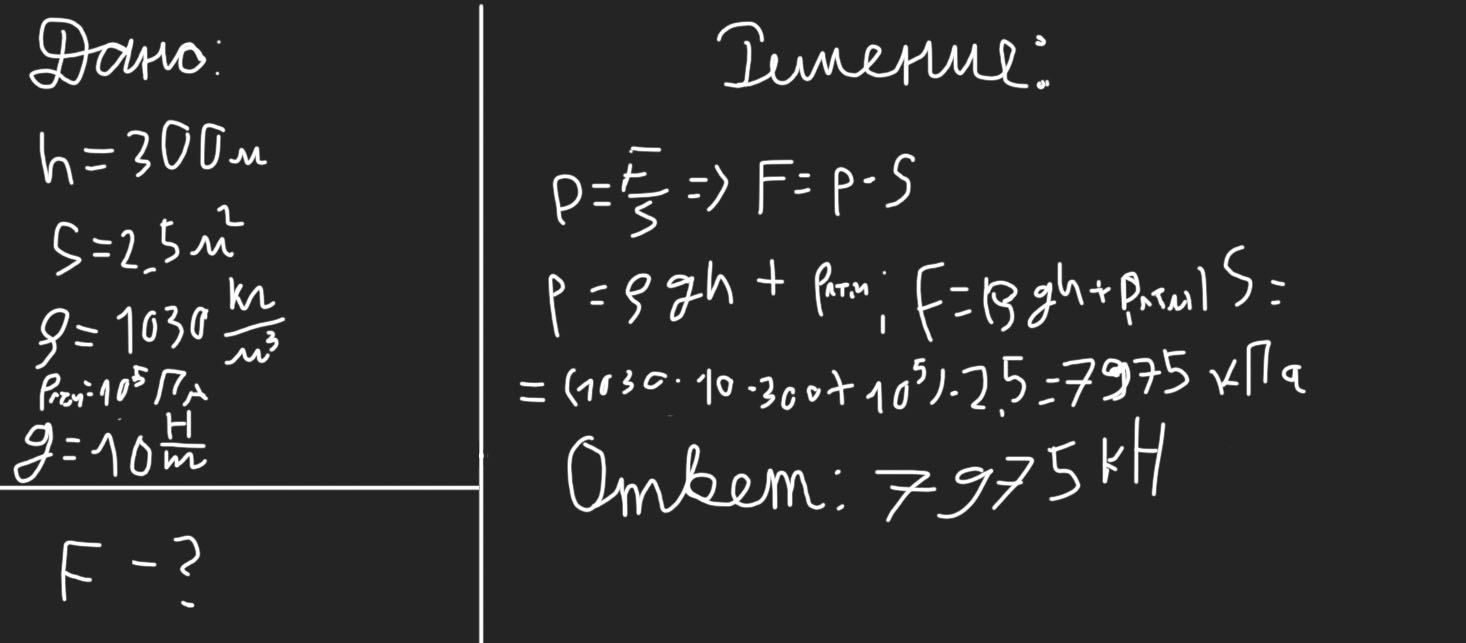 Дано:
h=300м
S=2,5м²
ρ=1030 кг/м³
Pатм=10⁵ ПА
g=10 Н/m
F-?
Решение:
P=F/S=>F=p·S
P=ρgh+Pатм; F=(ρgh+Pатм)S=
=(1030·10·300+10⁵)·2,5=7975 кПа
Ответ: 7975 кН